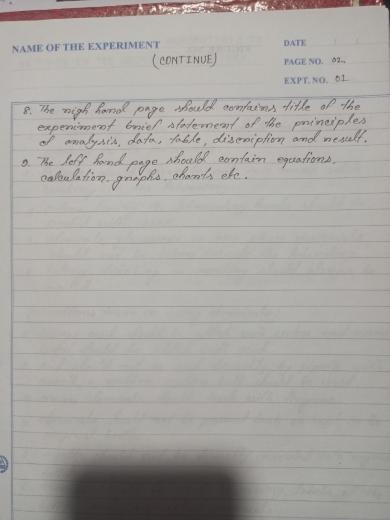 NAME OF THE EXPERIMENT
(CONTINUE)
DATE
PAGE NO. 02.
EXPT. NO. 01
8. The righ hand page should contains title of the
experiment brief statement of the principles
of analysis, data, table, discription and result.
9. The left hand page should contain equations,
calculation, graphs, charts etc..